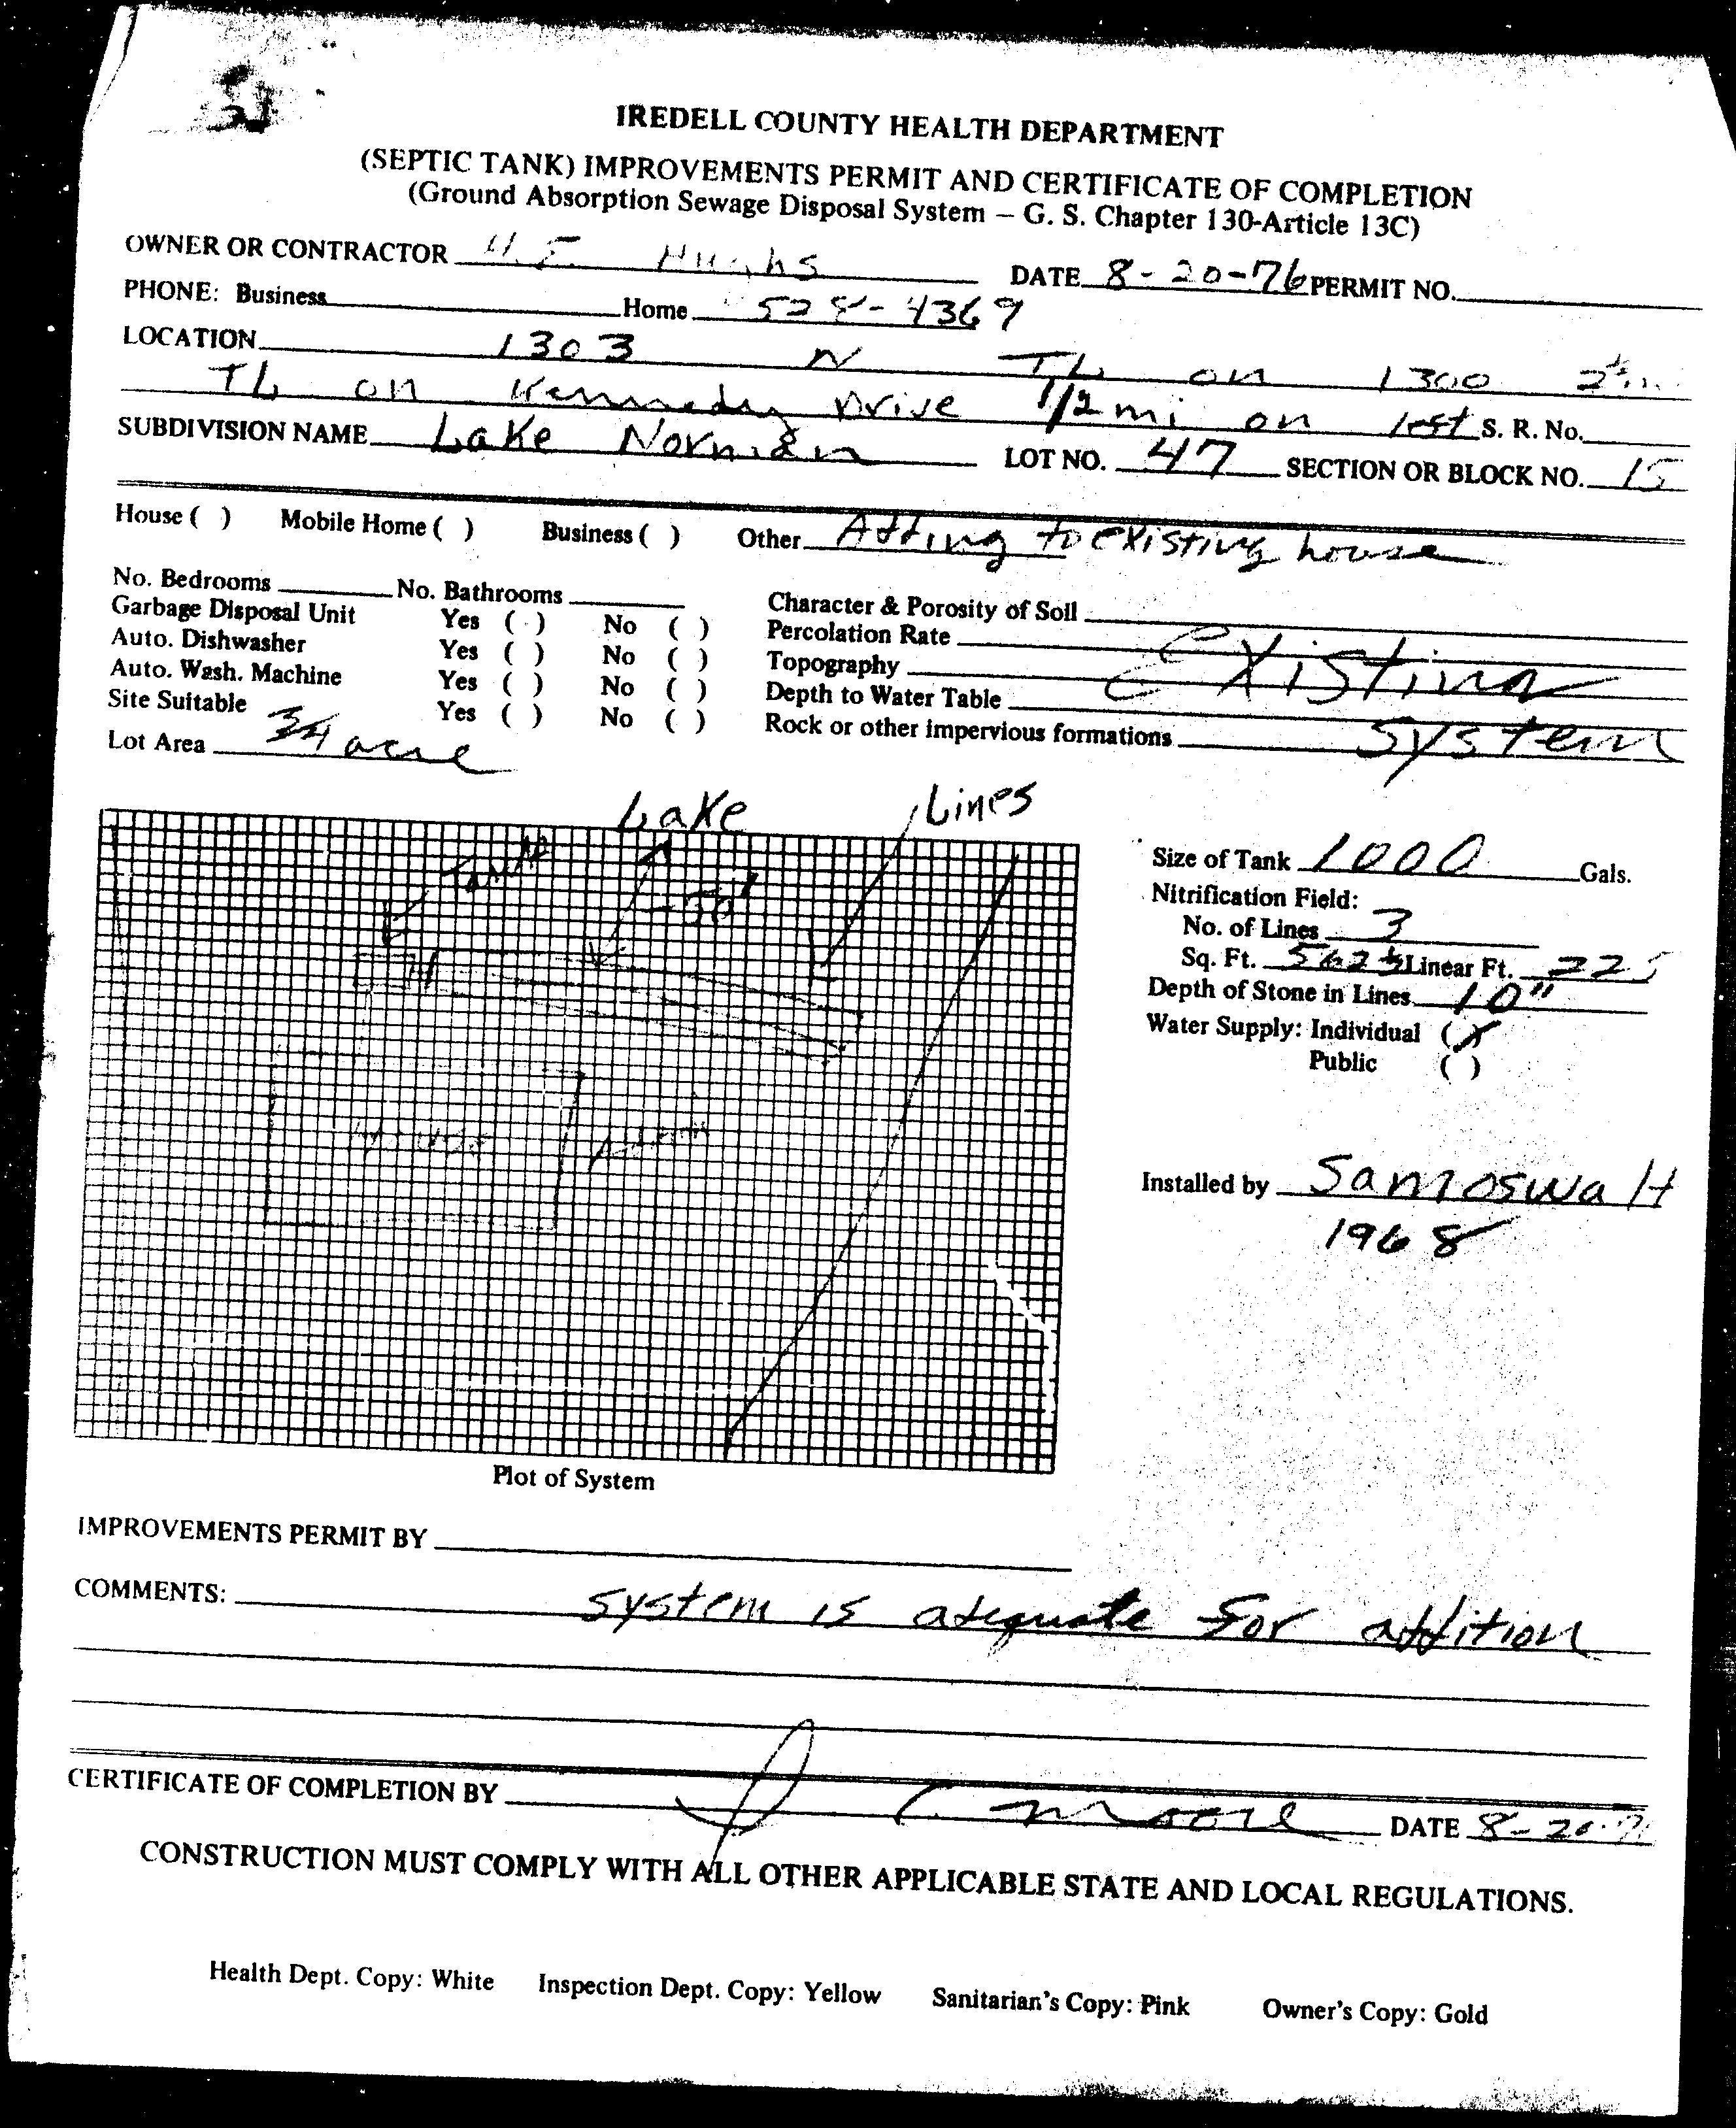 IREDELL COUNTY HEALTH DEPARTMENT
(SEPTIC TANK) IMPROVEMENTS PERMIT AND CERTIFICATE OF COMPLETION
(Ground Absorption Sewage Disposal System – G. S. Chapter 130-Article 13C)
OWNER OR CONTRACTOR Hughs DATE 8-20-76 PERMIT NO.
PHONE: Business Home 528-4369
LOCATION 1303 N TL on 1300
TL on Kennedy Drive 1/2 mi on left S. R. No.
SUBDIVISION NAME Lake Norman LOT NO. 47 SECTION OR BLOCK NO. 15
House ( ) Mobile Home ( ) Business ( ) Other Adding to existing house
No. Bedrooms No. Bathrooms Character & Porosity of Soil
Garbage Disposal Unit Yes ( ) No ( ) Percolation Rate
Auto. Dishwasher Yes ( ) No ( ) Topography Existing
Auto. Wash. Machine Yes ( ) No ( ) Depth to Water Table
Site Suitable Yes ( ) No ( ) Rock or other impervious formations System
Lot Area 3/4 acre
Lake Lines
Tank
50'
House Addition
Size of Tank 1000 Gals.
Nitrification Field:
No. of Lines 3
Sq. Ft. 562.5 Linear Ft. 225
Depth of Stone in Lines 10"
Water Supply: Individual (X)
Public ( )
Installed by
1968
Plot of System
IMPROVEMENTS PERMIT BY
COMMENTS: system is adequate for addition
CERTIFICATE OF COMPLETION BY Moore DATE 8-20-
CONSTRUCTION MUST COMPLY WITH ALL OTHER APPLICABLE STATE AND LOCAL REGULATIONS.
Health Dept. Copy: White Inspection Dept. Copy: Yellow Sanitarian's Copy: Pink Owner's Copy: Gold